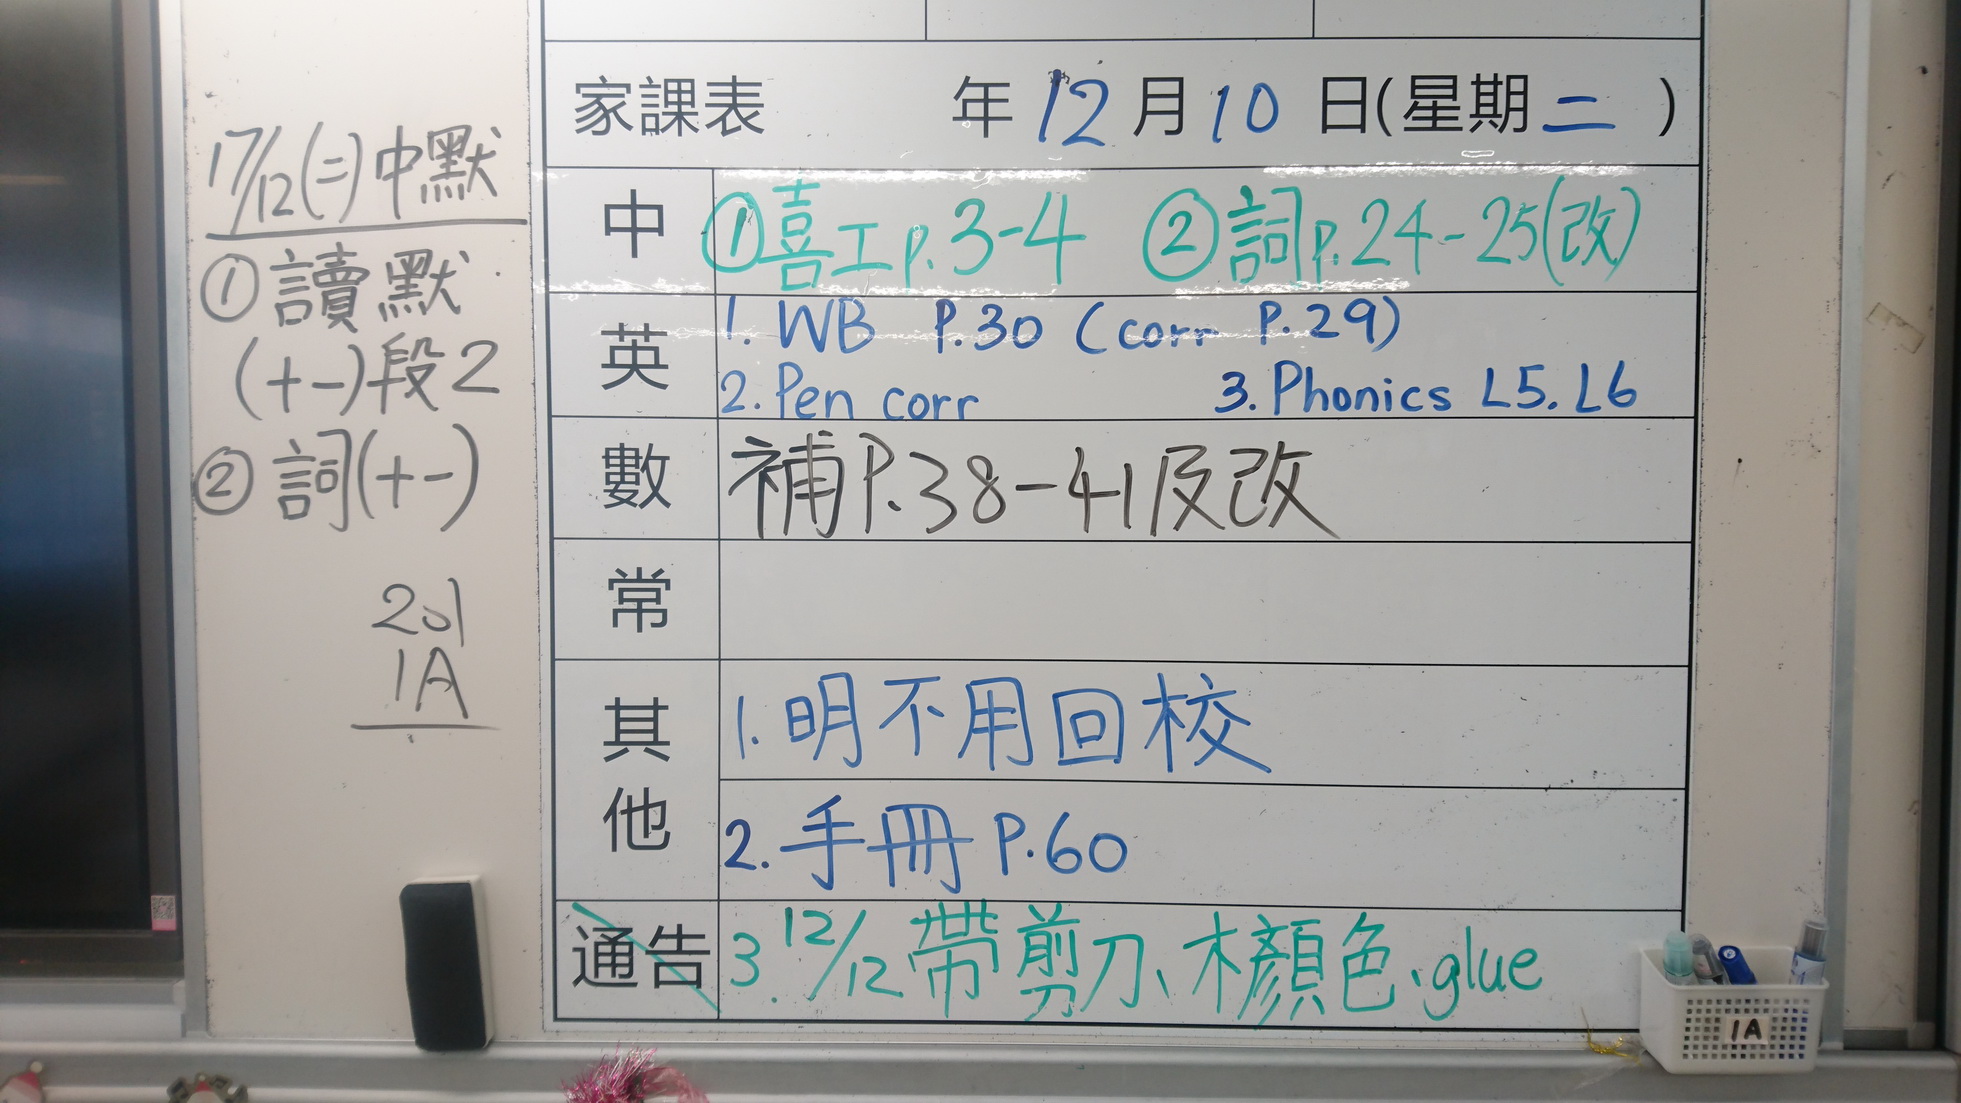 17/12(二)中默
①讀默
(十一)段2
②詞(十一)
201
1A
家課表 年12月10日(星期二)
中 ①喜工p.3-4 ②詞p.24-25(改)
英 1. WB P.30 (corr P.29)
2. Pen corr 3. Phonics L5. L6
數 補P.38-41及改
常
其他 1. 明不用回校
2. 手冊 P.60
通告 3. 12/12 帶剪刀、木顏色、glue
1A